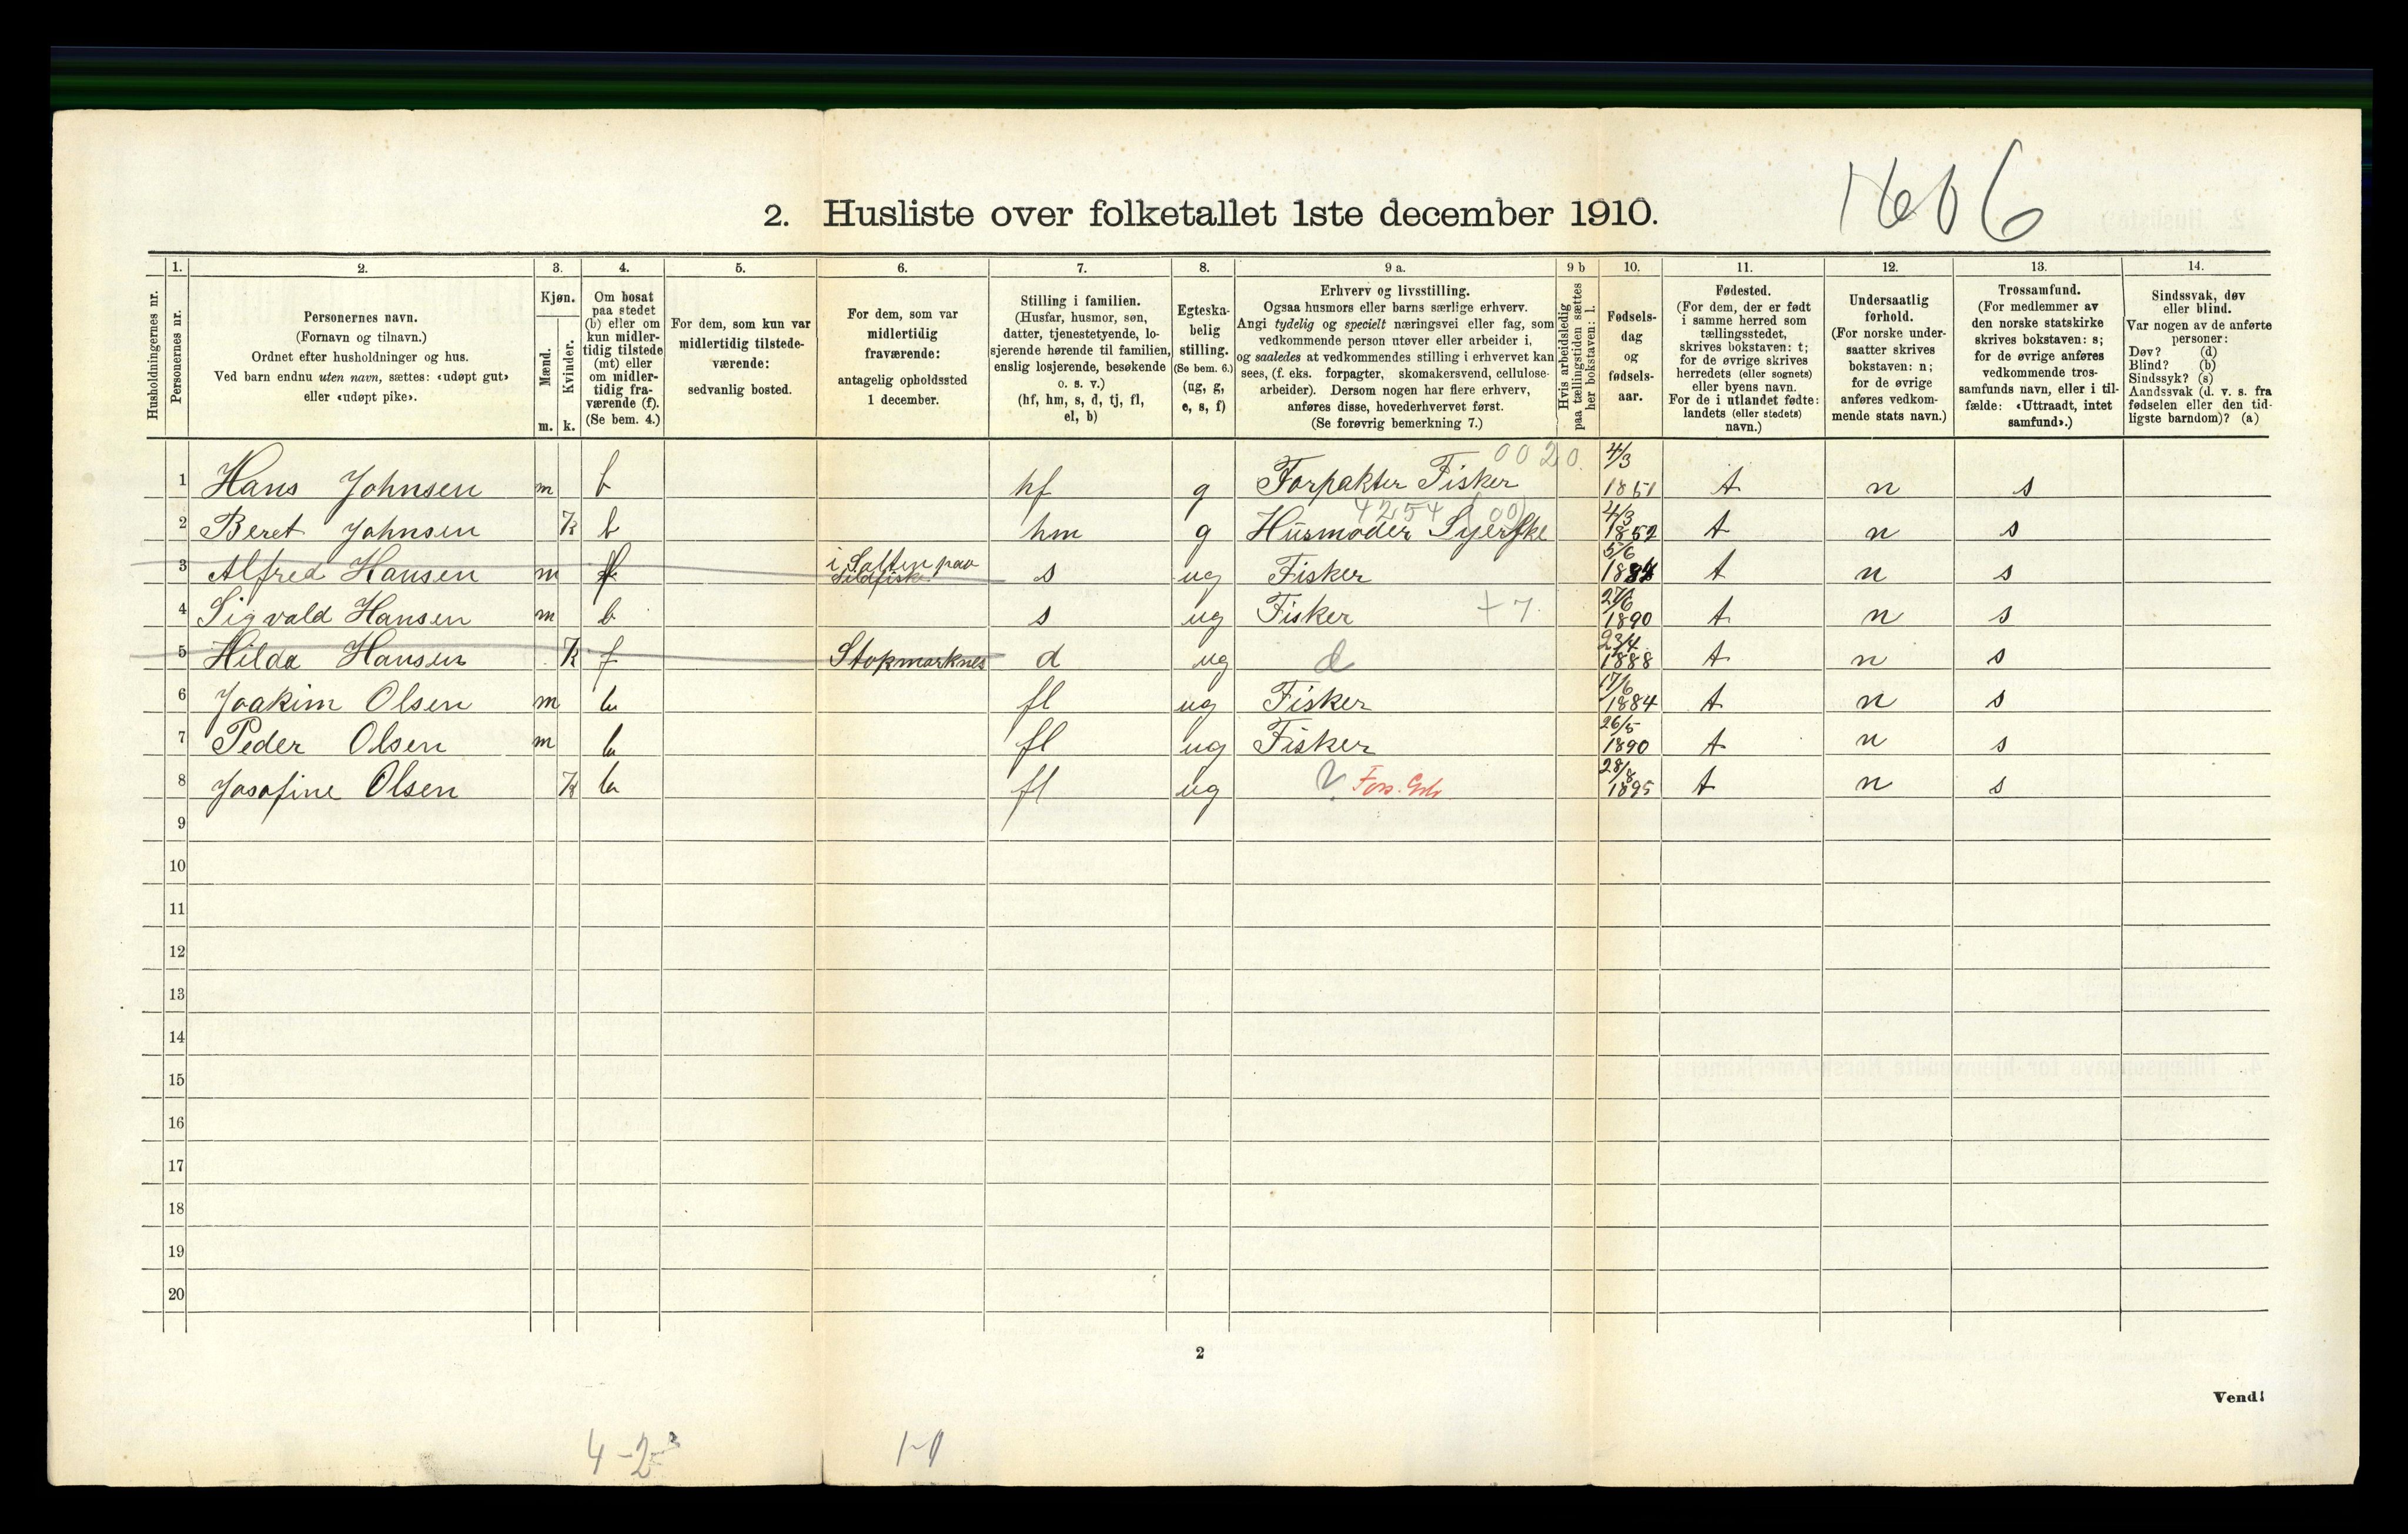 1606
2. Husliste over folketallet 1ste december 1910.
1. 2. 3. 4. 5. 6. 7. 8. 9 a. 9 b 10. 11. 12. 13. 14.
Husholdningernes nr.
Personernes nr.
Personernes navn.
(Fornavn og tilnavn.)
Ordnet efter husholdninger og hus.
Ved barn endnu uten navn, sættes: «udøpt gut»
eller «udøpt pike».
Kjøn.
Mænd.
Kvinder.
m. k.
Om bosat
paa stedet
(b) eller om
kun midler-
tidig tilstede
(mt) eller
om midler-
tidig fra-
værende (f).
(Se bem. 4.)
For dem, som kun var
midlertidig tilstede-
værende:
sedvanlig bosted.
For dem, som var
midlertidig
fraværende:
antagelig opholdssted
1 december.
Stilling i familien.
(Husfar, husmor, søn,
datter, tjenestetyende, lo-
sjerende hørende til familien,
enslig losjerende, besøkende
o. s. v.)
(hf, hm, s, d, tj, fl,
el, b)
Egteska-
belig
stilling.
(Se bem. 6.)
(ug, g,
e, s, f)
Erhverv og livsstilling.
Ogsaa husmors eller barns særlige erhverv.
Angi tydelig og specielt næringsvei eller fag, som
vedkommende person utøver eller arbeider i,
og saaledes at vedkommendes stilling i erhvervet kan
sees, (f. eks. forpagter, skomakersvend, cellulose-
arbeider). Dersom nogen har flere erhverv,
anføres disse, hovederhvervet først.
(Se forøvrig bemerkning 7.)
Hvis arbeidsledig
paa tællingstiden sættes
her bokstaven: l.
Fødsels-
dag
og
fødsels-
aar.
Fødested.
(For dem, der er født
i samme herred som
tællingsstedet,
skrives bokstaven: t;
for de øvrige skrives
herredets (eller sognets)
eller byens navn.
For de i utlandet fødte:
landets (eller stedets)
navn.)
Undersaatlig
forhold.
(For norske under-
saatter skrives
bokstaven: n;
for de øvrige
anføres vedkom-
mende stats navn.)
Trossamfund.
(For medlemmer av
den norske statskirke
skrives bokstaven: s;
for de øvrige anføres
vedkommende tros-
samfunds navn, eller i til-
fælde: «Uttraadt, intet
samfund».)
Sindssvak, døv
eller blind.
Var nogen av de anførte
personer:
Døv? (d)
Blind? (b)
Sindssyk? (s)
Aandssvak (d. v. s. fra
fødselen eller den tid-
ligste barndom)? (a)
0020. 4/3
1 Hans Johnsen m b hf g Forpakter Fisker 1851 t n s
4254 (00) 4/3
2 Beret Johnsen K b hm g Husmoder Syerske 1852 t n s
i Salten paa 5/6
3 Alfred Hansen m f Sildfiske s ug Fisker 1884 t n s
27/6
4 Sigvald Hansen m b s ug Fisker +7 1890 t n s
23/4
5 Hilda Hansen K f Stokmarknes d ug d 1888 t n s
17/6
6 Joakim Olsen m b fl ug Fisker 1884 t n s
26/5
7 Peder Olsen m b fl ug Fisker 1890 t n s
28/8
8 Josofine Olsen K b fl ug 1895 t n s
9
10
11
12
13
14
15
16
17
18
19
20
2
Vend!
4-2